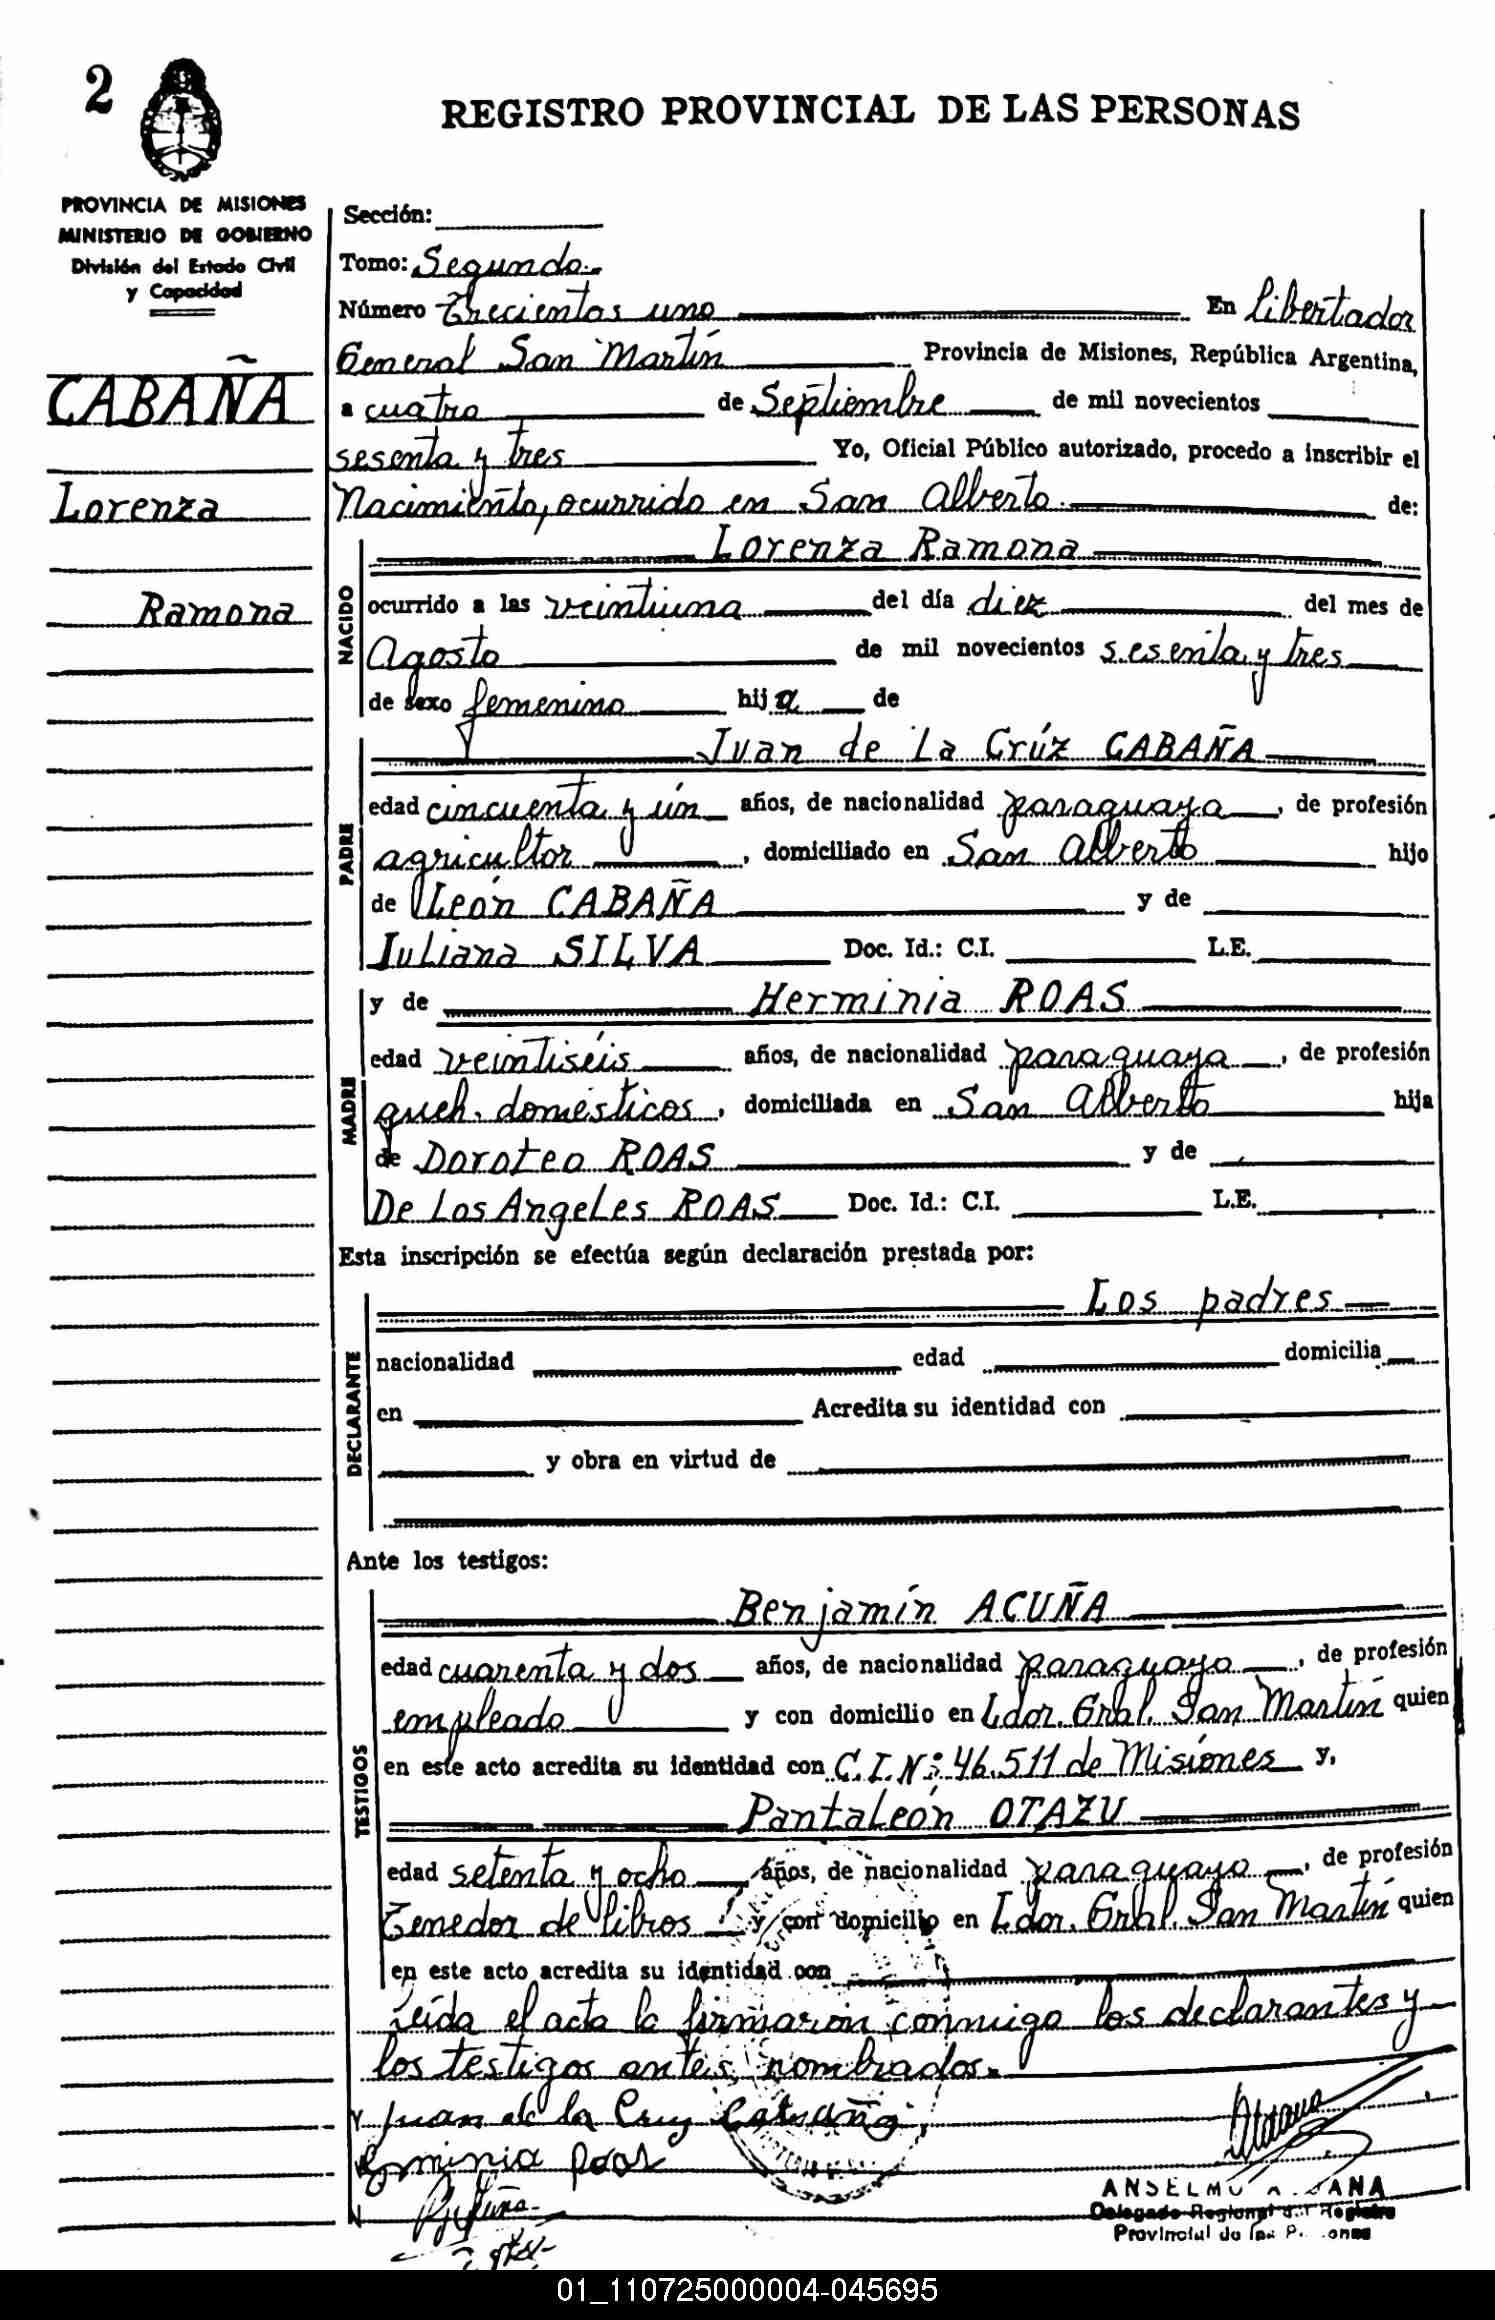 2
REGISTRO PROVINCIAL DE LAS PERSONAS
PROVINCIA DE MISIONES
MINISTERIO DE GOBIERNO
División del Estado Civil
y Capacidad
CABAÑA
Lorenza
Ramona
Sección:
Tomo: Segundo.
Número Trecientos uno En Libertador
General San Martín Provincia de Misiones, República Argentina,
a cuatro de Septiembre de mil novecientos
sesenta y tres Yo, Oficial Público autorizado, procedo a inscribir el
Nacimiento, ocurrido en San Alberto de:
NACIDO
Lorenza Ramona
ocurrido a las veintiuna del día diez del mes de
Agosto de mil novecientos sesenta y tres
de sexo femenino hija de
PADRE
Juan de La Crúz CABAÑA
edad cincuenta y ún años, de nacionalidad paraguaya, de profesión
agricultor, domiciliado en San Alberto hijo
de León CABAÑA y de
Juliana SILVA Doc. Id.: C.I. L.E.
MADRE
y de Herminia ROAS
edad veintiséis años, de nacionalidad paraguaya, de profesión
queh. domésticos, domiciliada en San Alberto hija
de Doroteo ROAS y de
De Los Angeles ROAS Doc. Id.: C.I. L.E.
Esta inscripción se efectúa según declaración prestada por:
DECLARANTE
Los padres
nacionalidad edad domicilia
en Acredita su identidad con
y obra en virtud de
Ante los testigos:
TESTIGOS
Benjamín ACUÑA
edad cuarenta y dos años, de nacionalidad paraguayo, de profesión
empleado y con domicilio en Ldor. Gral. San Martín quien
en este acto acredita su identidad con C.I.Nº: 46.511 de Misiones y,
Pantaleón OTAZU
edad setenta y ocho años, de nacionalidad paraguayo, de profesión
Tenedor de libros y con domicilio en Ldor. Gral. San Martín quien
en este acto acredita su identidad con
Leída el acta la firmaron conmigo los declarantes y
los testigos antes nombrados.
Juan de la Cruz Cabaña
Erminia Roas
ANSELMO
Delegado Regional del Registro
Provincial de las Personas
01_110725000004-045695